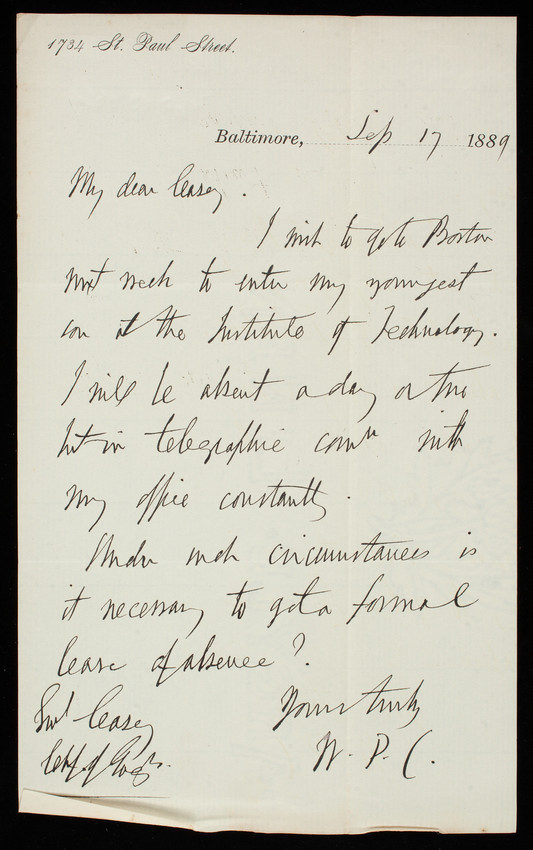 1734 St. Paul Street.
Baltimore, Sep 17 1889
My dear Casey.
I wish to go to Boston
next week to enter my youngest
son at the Institute of Technology.
I will be absent a day or two
but in telegraphic comn with
my office constantly.
Under such circumstances is
it necessary to get a formal
leave of absence?
Yours truly
W. P. C.
Genl Casey
Chf of Engs.